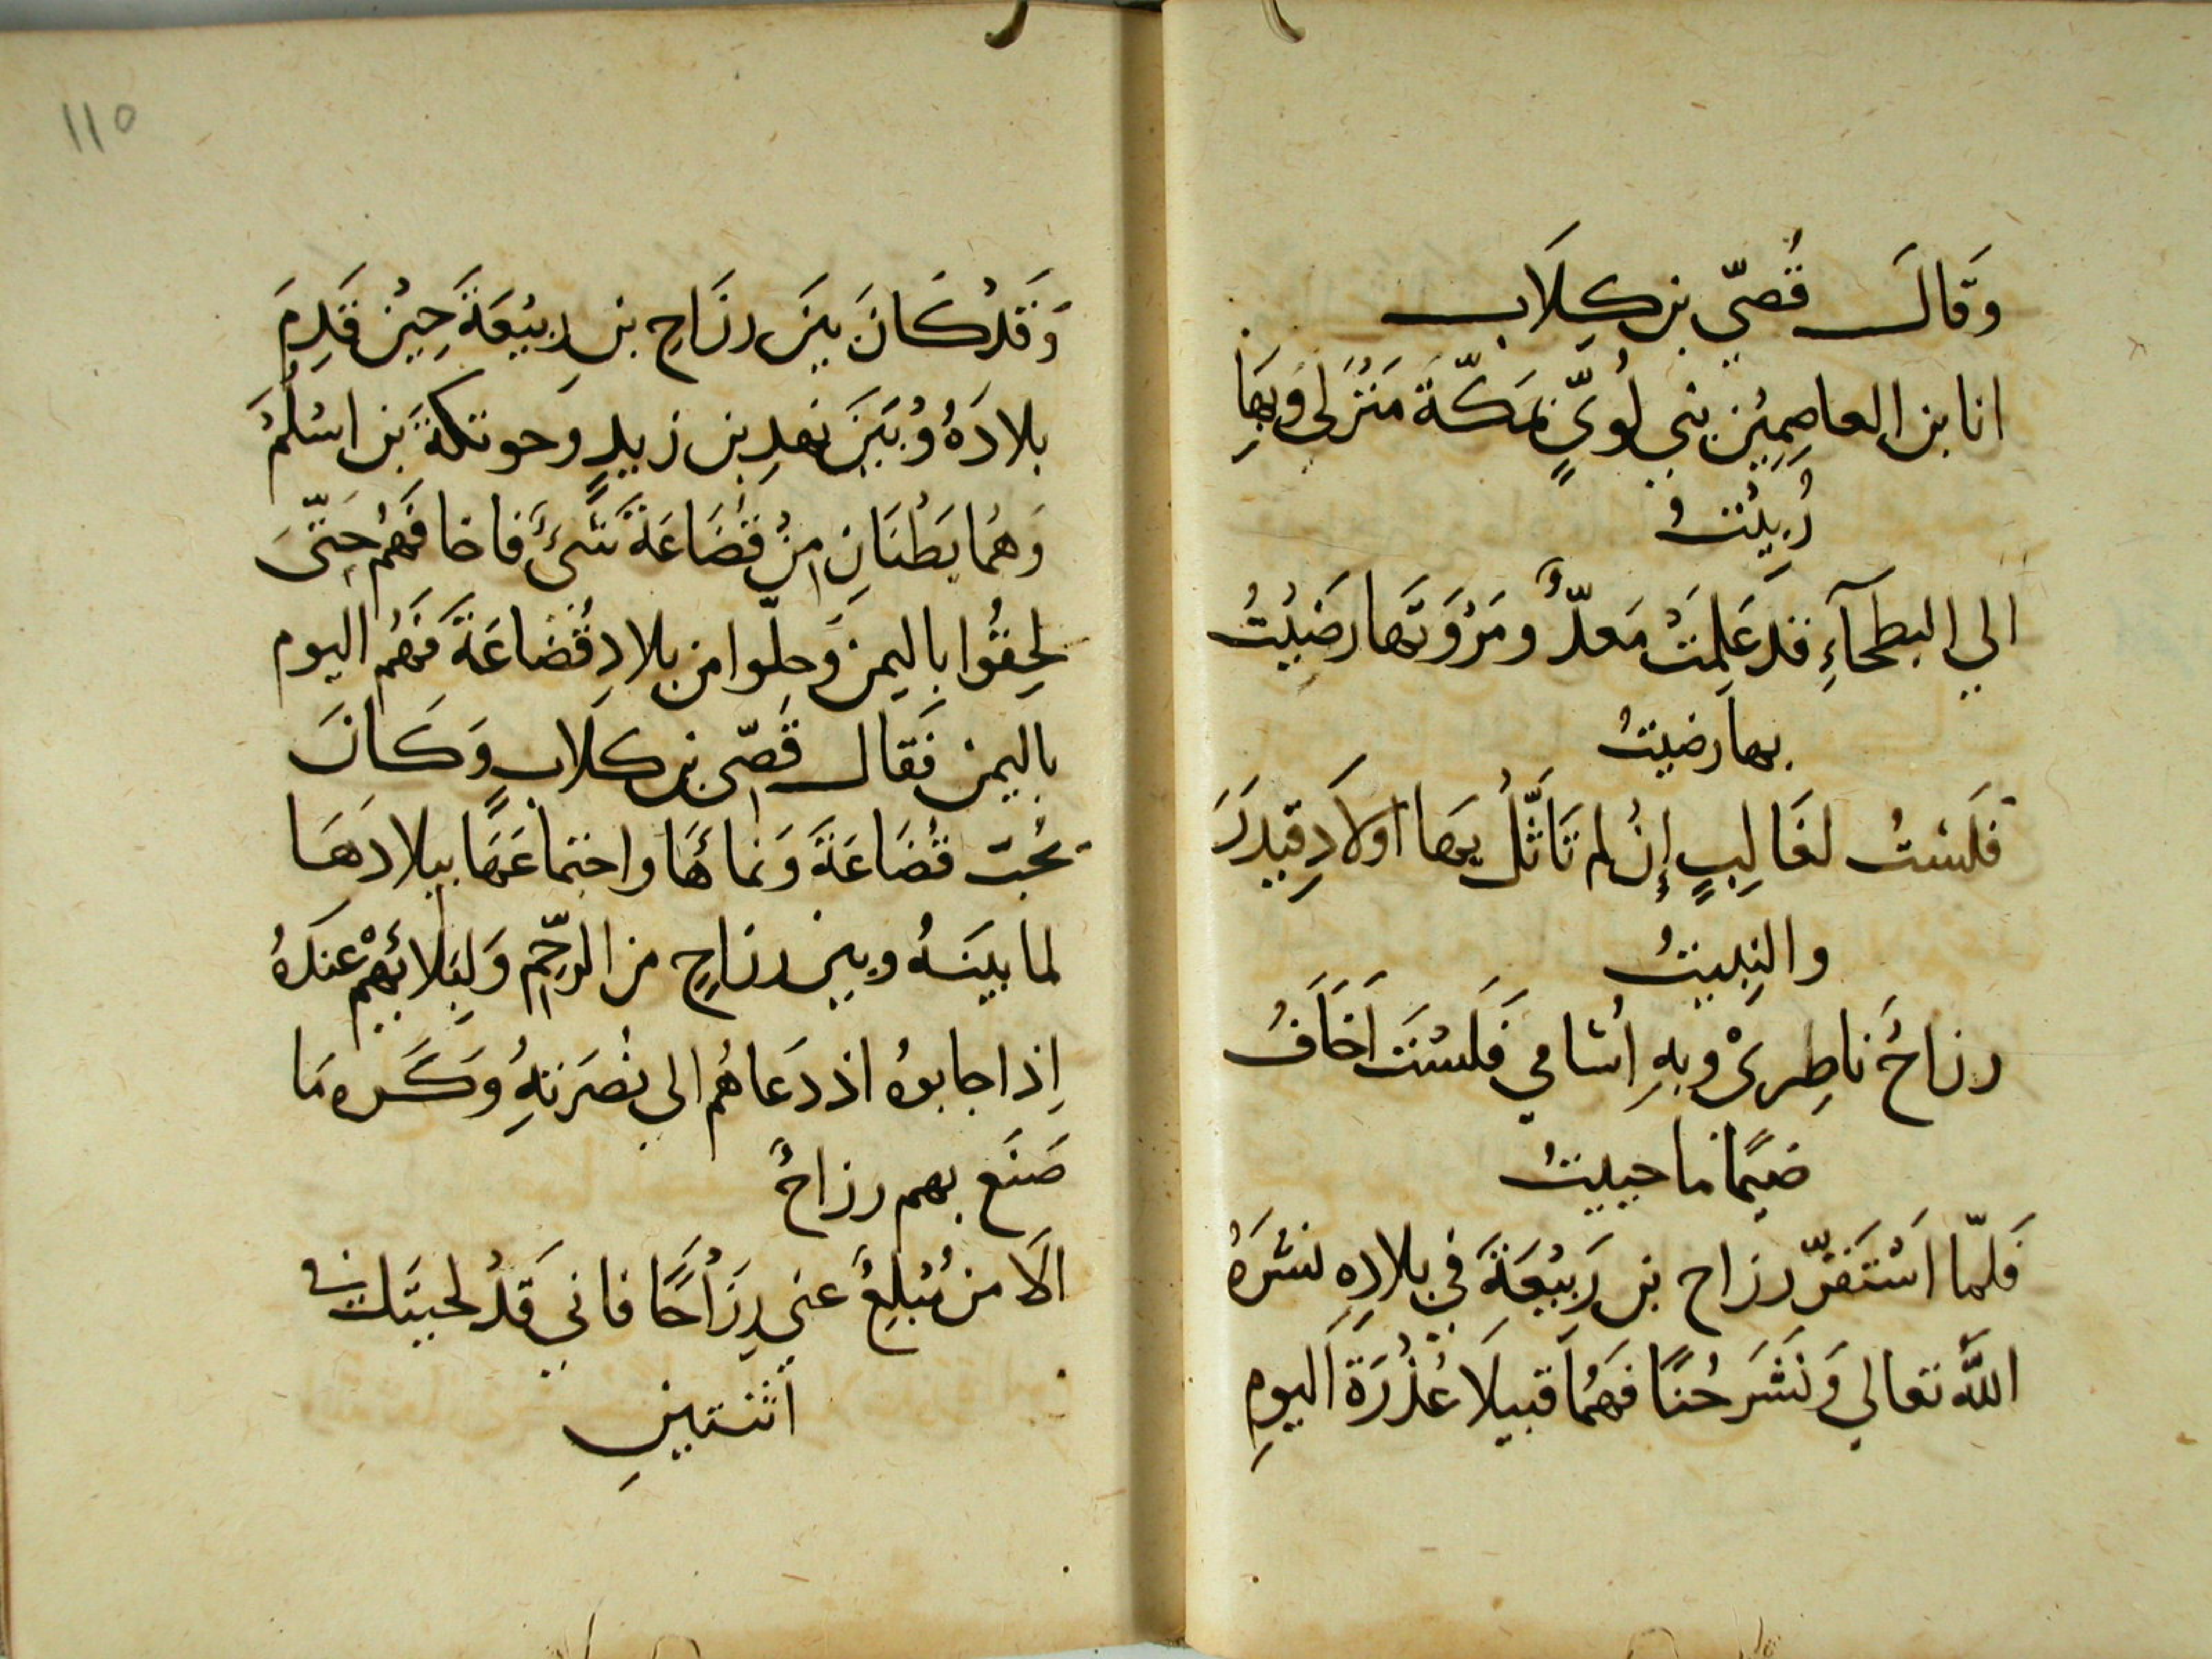 وَقَالَ قُصَيّ بن كِلَاب
انا بن العاصِمِيْنِ بني لُوَيٍّ بمَكّةَ مَنْزلي وَبِهَا
رُبِيْتُ
الي البطحآءِ قد عَلِمَتْ مَعدٌّ ومَرْوَتها رَضِيْتُ
بها رضيتُ
فَلَسْتُ لغَالِبٍ إِنْ لم تَاثَّلْ بها اولَادِ قيدَرَ
والنِبيتُ
رزاحٌ ناصِرِيْ وبهِ اسُامي فَلَسْتَ اَخَافُ
ضيمًا ما حييتُ
فَلمّا اَسْتَقرّ رزاح بن رَبيْعَةَ في بلادِهِ نشَرَهُ
اللَّه تعالي وَنَشَر حُنًا فهُمَا قبيلَا عُذْرَةَ اَليومِ
١١٥
وَقَدْ كَانَ بينَ رزَاحِ بن رِبيْعَةَ حِيْن قَدِمَ
بلادَهُ وُبَيَنَ نهدِ بن زيدٍ وحوتكةَ بن اسْلُمَ
وَهُمَا بَطْنَانِ مِنْ قُضَاعَةَ شَيءٌ فاخافَهُم حَتّىَ
لحِقُوا بِاليمن وَحلّوا من بلادِ قُضاعَةَ فَهُم اليوم
باليمن فَقال قُصّي بن كلابٍ وَكَانَ
يُحُبّ قُضَاعَةَ وَنماءَهَا واجتماعَهَا ببلادَهَا
لما بينَهُ وبين رزاحٍ من الرحّمِ وَلِبَلائهِمْ عندَهُ
إِذ اجابوهُ اذ دَعَاهُم الي نُصَرتهِ وَكَره مَا
صَنَع بهم رزاحٌ
الَا من مُبْلِغٌ عني رِزَاحًا فاني قَدْ لحيتَك في
اثنتينِ